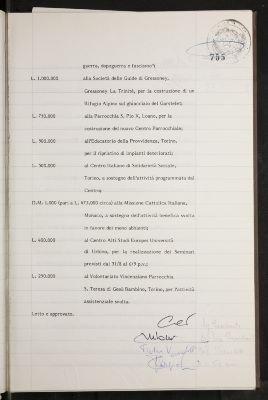 755
guerra, dopoguerra e fascismo";
L. 1.000.000 alla Società delle Guide di Gressoney,
Gressoney La Trinité, per la costruzione di un
Rifugio Alpino sul ghiacciaio del Garstelet;
L. 750.000 alla Parrocchia S. Pio X, Loano, per la
costruzione del nuovo Centro Parrocchiale;
L. 500.000 all'Educatorio della Provvidenza, Torino,
per il ripristino di impianti deteriorati;
L. 500.000 al Centro Italiano di Solidarietà Sociale,
Torino, a sostegno dell'attività programmata dal
Centro;
D.M. 1.000 (pari a L. circa) alla Missione Cattolica Italiana,
Monaco, a sostegno dell'attività benefica svolta
in favore dei meno abbienti;
L. 400.000 al Centro Alti Studi Europei Università
di Urbino, per la realizzazione dei Seminari
previsti dal 31/8 al 6/9 p.v.;
L. 250.000 al Volontariato Vincenziano Parrocchia
S. Teresa di Gesù Bambino, Torino, per l'attività
assistenziale svolta.
Letto e approvato.